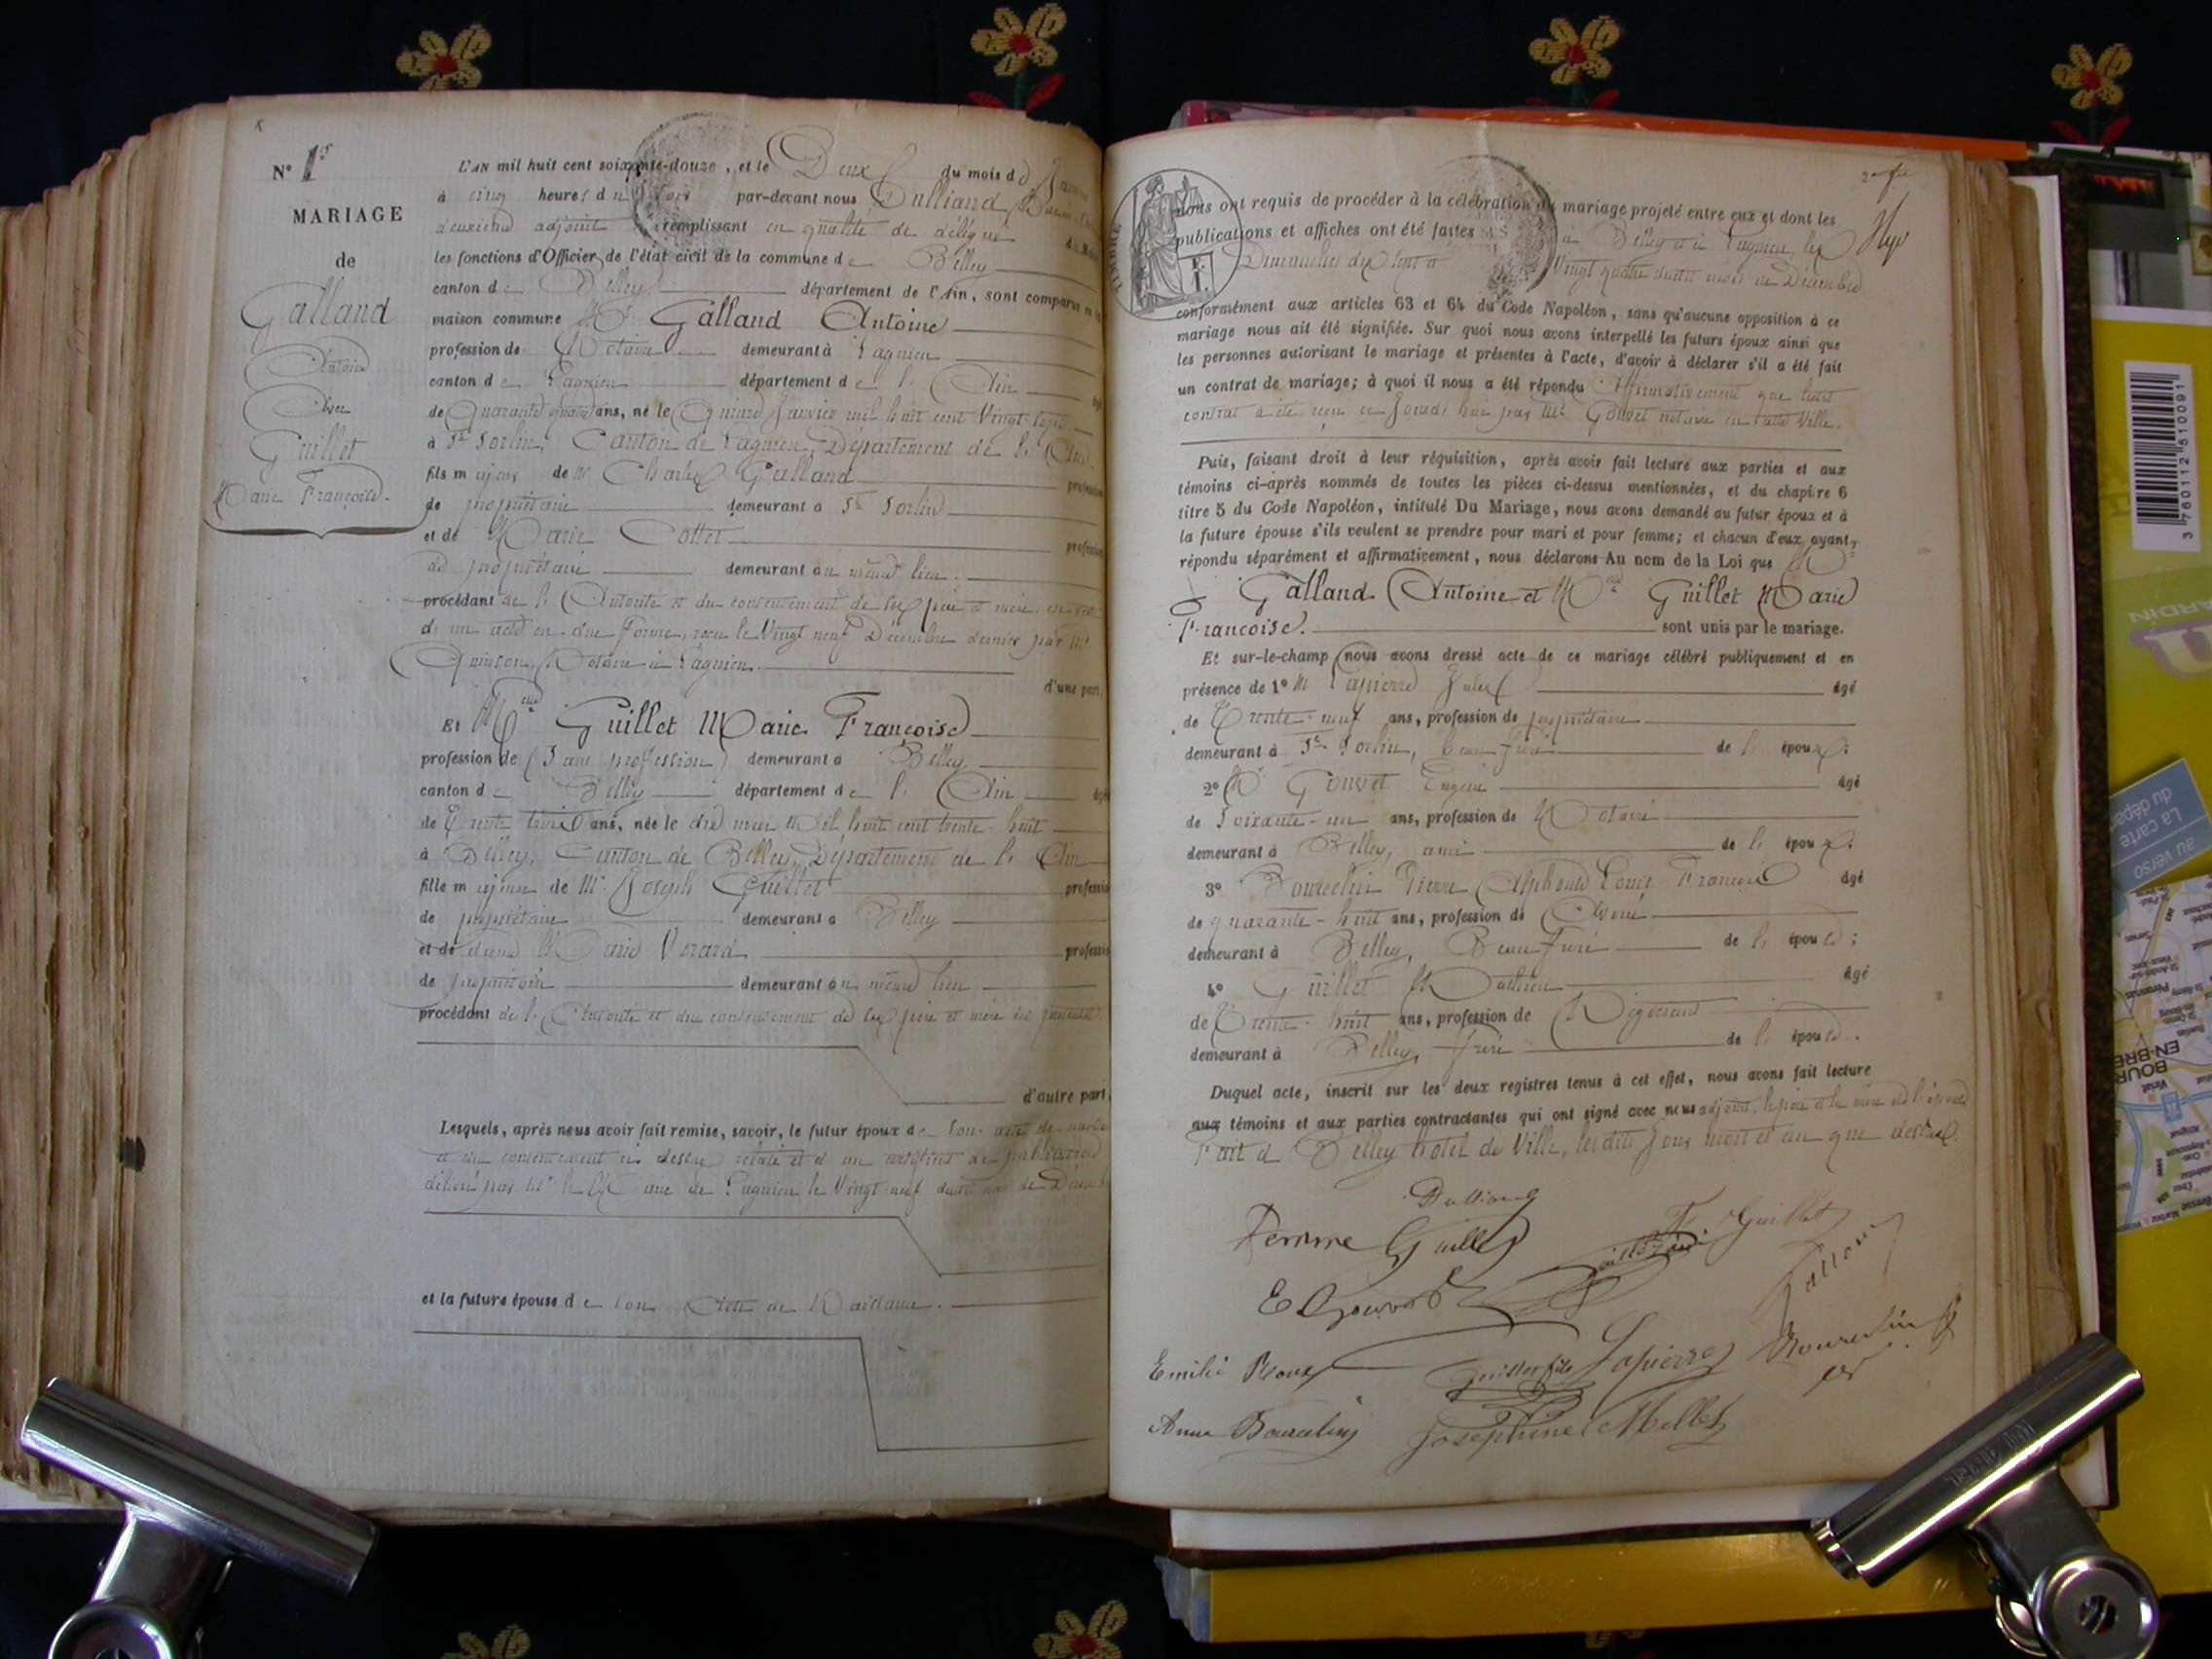 N° 1er
MARIAGE
de
Galland
Antoine
Avec
Guillet
Marie Françoise.
L'AN mil huit cent soixante-douze, et le Deux du mois de Janvier
à cinq heures du soir par-devant nous Dulliand
deuxième adjoint remplissant en qualité de délégué
les fonctions d'Officier de l'état civil de la commune de Belley
canton de Belley département de l'Ain, sont comparus en la
maison commune Mr Galland Antoine
profession de Notaire demeurant à Lagnieu
canton de Lagnieu département de l'Ain âgé
de Quarante quatre ans, né le Quinze Janvier mil huit cent Vingt sept
à St Sorlin, Canton de Lagnieu, Département de l'Ain.
fils majeur de Mr Charles Galland profession
de propriétaire demeurant à St Sorlin
et de Marie Cottet profession
de propriétaire demeurant au même lieu.
procédant de l'Autorité et du consentement de ses père et mère, en vertu
d'un acte en due forme, reçu le Vingt neuf Décembre dernier par Me
Quinson, Notaire à Lagnieu.
d'une part,
Et Melle Guillet Marie Françoise
profession de (Sans profession) demeurant à Belley
canton de Belley département de l'Ain âgée
de Trente trois ans, née le dix mai Mil huit cent trente-huit
à Belley, Canton de Belley, Département de l'Ain
fille majeure de Mr Joseph Guillet profession
de propriétaire demeurant à Belley
et de dame Marie profession
de propriétaire demeurant au même lieu
procédant de l'Autorité et du consentement de ses père et mère ici présents.
d'autre part.
Lesquels, après nous avoir fait remise, savoir, le futur époux de son acte de naissance
et du consentement ci dessus relaté et d'un certificat de publication
délivré par Mr le Maire de Lagnieu le Vingt-neuf dudit mois de Décembre
et la future épouse de son Acte de Naissance.
TIMBRE
nous ont requis de procéder à la célébration du mariage projeté entre eux et dont les
publications et affiches ont été faites à Belley et à Lagnieu, les
Dimanches dix sept et Vingt quatre dudit mois de Décembre
conformément aux articles 63 et 64 du Code Napoléon, sans qu'aucune opposition à ce
mariage nous ait été signifiée. Sur quoi nous avons interpellé les futurs époux ainsi que
les personnes autorisant le mariage et présentes à l'acte, d'avoir à déclarer s'il a été fait
un contrat de mariage; à quoi il nous a été répondu Affirmativement que leur
contrat a été reçu ce jourd'hui par Me Gouvet notaire en cette Ville.
Puis, faisant droit à leur réquisition, après avoir fait lecture aux parties et aux
témoins ci-après nommés de toutes les pièces ci-dessus mentionnées, et du chapitre 6
titre 5 du Code Napoléon, intitulé Du Mariage, nous avons demandé au futur époux et à
la future épouse s'ils veulent se prendre pour mari et pour femme; et chacun d'eux ayant
répondu séparément et affirmativement, nous déclarons Au nom de la Loi que Mr
Galland Antoine et Melle Guillet Marie
Françoise. sont unis par le mariage.
Et sur-le-champ nous avons dressé acte de ce mariage célébré publiquement et en
présence de 1° Mr Lapierre Jules âgé
de Trente-neuf ans, profession de propriétaire
demeurant à St Sorlin, beau frère de l'époux;
2° Mr Gouvet Eugène âgé
de Soixante-un ans, profession de Notaire
demeurant à Belley, ami de l'époux;
3° Bourdin Pierre Alphonse Louis François âgé
de quarante-huit ans, profession de Avoué
demeurant à Belley, Beau frère de l'épouse;
4° Guillet Mathieu âgé
de Trente-huit ans, profession de Négociant
demeurant à Belley, frère de l'épouse.
Duquel acte, inscrit sur les deux registres tenus à cet effet, nous avons fait lecture
aux témoins et aux parties contractantes qui ont signé avec nous adjoint, le père et la mère de l'épouse
Fait à Belley hôtel de Ville, lesdits jour, mois et an que dessus.
Dulliand
Femme Guillet F. Guillet
Galland
E Gouvet
Emilie Roux Guillet fils Lapierre
Anne Joséphine Millet
3 760112 510091
La carte
au verso
BOURG
EN-BRE
JARDIN